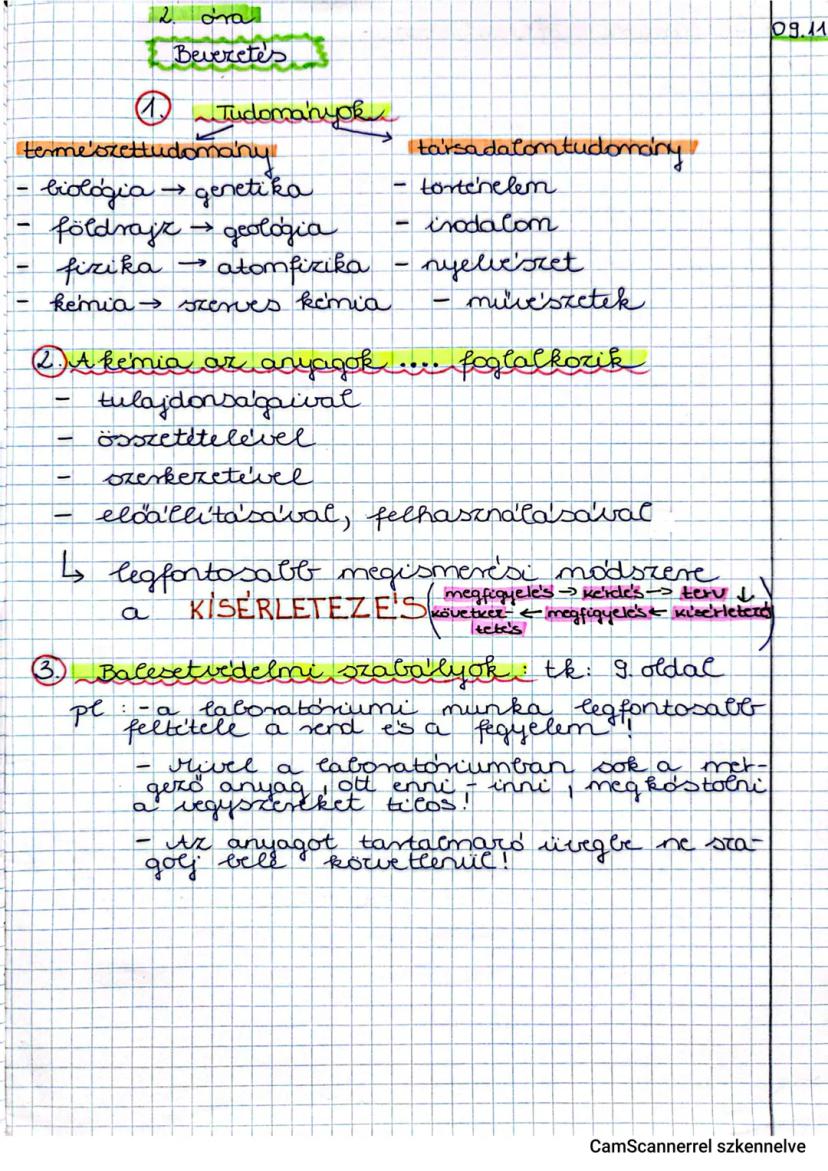 2. óra
09.11
Bevezetés
1. Tudományok
természettudomány társadalomtudomány
- biológia → genetika - történelem
- földrajz → geológia - irodalom
- fizika → atomfizika - nyelvészet
- kémia → szerves kémia - művészetek
2. A kémia az anyagok .... foglalkozik
- tulajdonságaival
- összetételével
- szerkezetével
- előállításával, felhasználásával
↳ legfontosabb megismerési módszere
a KÍSÉRLETEZÉS (megfigyelés → kérdés → terv ↓
következ- ← megfigyelés ← kísérletező)
tetés
3. Balesetvédelmi szabályok: tk: 9. oldal
pl: - a laboratóriumi munka legfontosabb
feltétele a rend és a fegyelem!
- Mivel a laboratóriumban sok a mér-
gező anyag, ott enni - inni, megkóstolni
a vegyszereket tilos!
- Az anyagot tartalmazó üvegbe ne sza-
golj bele közvetlenül!
CamScannerrel szkennelve